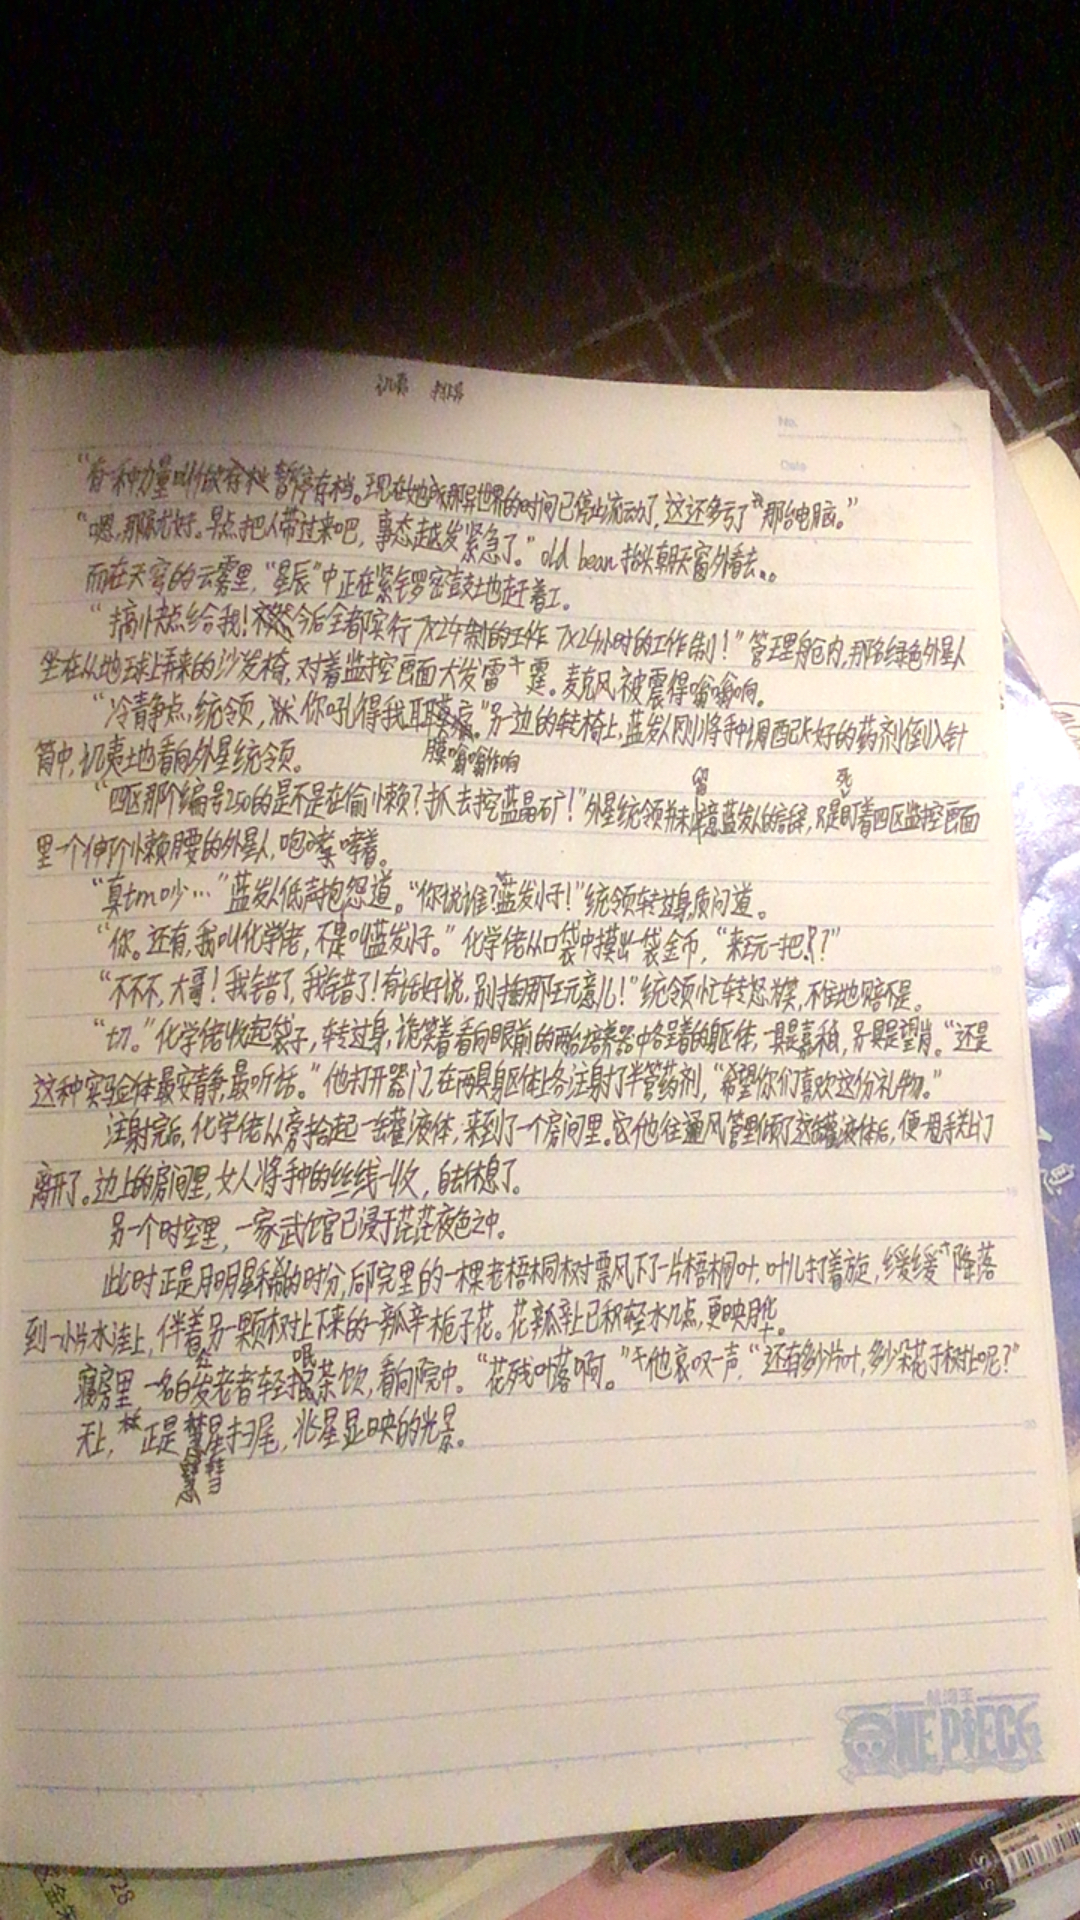 讥 
No.
Date
“有一种力量叫做 暂停存档。现在她所那异世界的时间已停止流动了,这还多亏了我那台电脑。”
“嗯,那就好。早点把人带过来吧,事态越发紧急了。”old bean抬头朝天窗外看去。
而在天穹的云雾里,“星辰”中正在紧锣密鼓地赶着工。
“搞快点给我!不然今后全都实行7x24制的工作 7x24小时的工作制!”管理舱内,那名绿色外星人
坐在从地球上弄来的沙发椅,对着监控画面大发雷霆。麦克风被震得嗡嗡响。
“冷静点,统领,你吼得我耳 。”另一边的转椅上,蓝发人刚刚将手中调配好的药剂倒入针
膜嗡嗡作响
筒中,讥 地看向外星统领。
留 死
“四区那个编号250的是不是在偷小懒?扒去挖蓝晶矿!”外星统领并未 意蓝发人的 ,只是盯着四区监控画面
里一个伸个小懒腰的外星人,咆哮着。
“真tm吵…”蓝发人低声抱怨道。“你说谁?蓝发小子!”统领转过身,质问道。
“你。还有,我叫化学佬,不是叫蓝发小子。”化学佬从口袋中摸出一袋金币,“来玩一把?”
“不不不,大哥!我错了,我错了!有话好说,别掏那玩意儿!”统领忙转怒为笑,不住地赔不是。
“切。”化学佬收起袋子,转过身,诡笑着看向眼前的两台培养器中各呈着的躯体,一具是嘉柏,另具是望肖。“还是
这种实验体最安静,最听话。”他打开器门,在两具身区体上各注射了半管药剂,“希望你们喜欢这份礼物。”
注射完后,化学佬从旁拾起一罐液体,来到了一个房间里。他往通风管里倾了这罐液体后,便甩手关上门
离开了。边上的房间里,女人将手中的丝线一收,自去休息了。
另一个时空里,一家武馆已浸于茫茫夜色之中。
此时正是月明星稀的时分,后院里的一棵老梧桐树飘下了一片梧桐叶,叶儿打着旋,缓缓降落
到一小片水洼上,伴着另一颗树上下来的一瓣栀子花。花瓣上已积轻水几点,更映月华。
红 呡
寝房里一名白发老者轻 茶饮,看向院中。“花残叶落啊。”他哀叹一声,“还有多少片叶,多少朵花于树上呢?”
天上,正是 星扫尾,北星显映的光景。
慧 彗
航海王
ONE PIECE